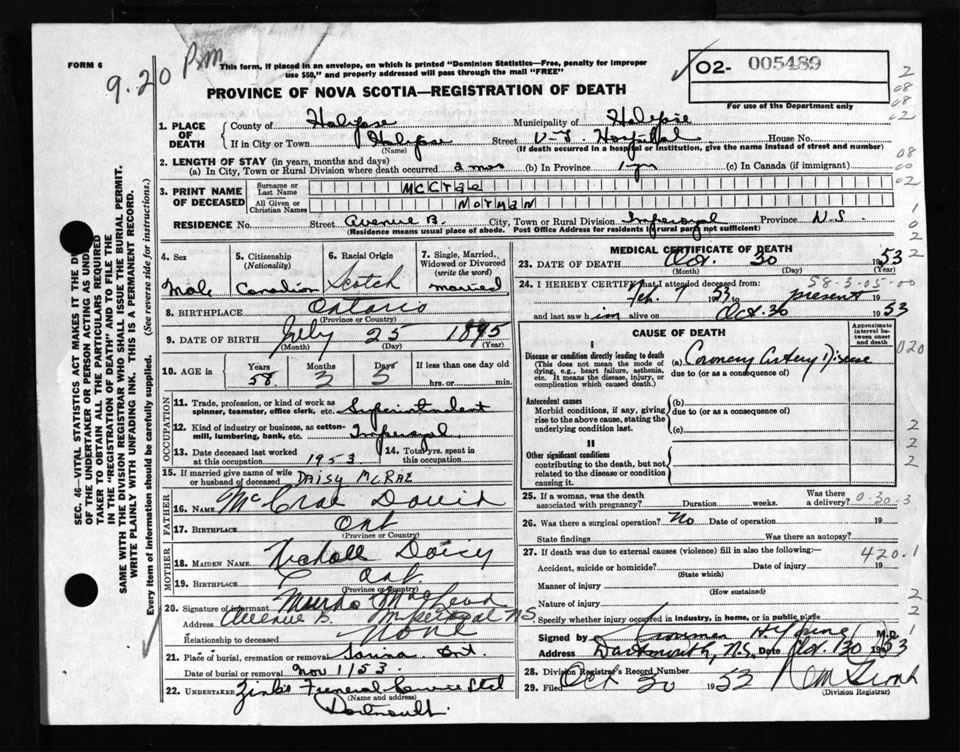 FORM 6
9.20 Pm
This form, if placed in an envelope, on which is printed "Dominion Statistics—Free, penalty for improper
use $50," and properly addressed will pass through the mail "FREE"
02- 005489
PROVINCE OF NOVA SCOTIA—REGISTRATION OF DEATH
For use of the Department only
1. PLACE OF DEATH
County of Halifax Municipality of Halifax
If in City or Town Halifax Street V-G Hospital House No.
(Name) (If death occurred in a hospital or institution, give the name instead of street and number)
2. LENGTH OF STAY (in years, months and days)
(a) In City, Town or Rural Division where death occurred 2 mos (b) In Province 1 yr (c) In Canada (if immigrant)
3. PRINT NAME OF DECEASED
Surname or Last Name McCrae
All Given or Christian Names Norman
RESIDENCE No. Street Avenue B. City, Town or Rural Division Imperoyal Province N.S.
(Residence means usual place of abode. Post Office Address for residents if rural part not sufficient)
4. Sex Male
5. Citizenship (Nationality) Canadian
6. Racial Origin Scotch
7. Single, Married, Widowed or Divorced (write the word) married
8. BIRTHPLACE Ontario
(Province or Country)
9. DATE OF BIRTH July 25 1895
(Month) (Day) (Year)
10. AGE in Years Months Days If less than one day
58 3 5 hrs. or min.
OCCUPATION
11. Trade, profession, or kind of work as
spinner, teamster, office clerk, etc. Superintendent
12. Kind of industry or business, as cotton-
mill, lumbering, bank, etc. Imperoyal
13. Date deceased last worked
at this occupation 1953
14. Total yrs. spent in
this occupation
15. If married give name of wife
or husband of deceased DAISY McRAE
FATHER
16. NAME McCrae David
17. BIRTHPLACE Ont
(Province or Country)
MOTHER
18. MAIDEN NAME Nicholl Daisy
19. BIRTHPLACE Ont.
(Province or Country)
20. Signature of informant MacLeod
Address Avenue B. Imperoyal N.S.
Relationship to deceased None
21. Place of burial, cremation or removal Sarnia Ont.
Date of burial or removal Nov 1/53
22. UNDERTAKER Zink's Funeral Service Ltd
(Name and address)
Dartmouth
MEDICAL CERTIFICATE OF DEATH
23. DATE OF DEATH Oct. 30 1953
(Month) (Day) (Year)
58-3-05-00
24. I HEREBY CERTIFY that I attended deceased from:
Feb. 9 1953 to present 19
and last saw him alive on Oct. 30 1953
CAUSE OF DEATH
Approximate interval between onset and death
I
Disease or condition directly leading to death
(This does not mean the mode of
dying, e.g., heart failure, asthenia,
etc. It means the disease, injury, or
complication which caused death.)
(a) Coronary Artery Disease
due to (or as a consequence of)
Antecedent causes
Morbid conditions, if any, giving
rise to the above cause, stating the
underlying condition last.
(b)
due to (or as a consequence of)
(c)
II
Other significant conditions
contributing to the death, but not
related to the disease or condition
causing it.
25. If a woman, was the death
associated with pregnancy? Duration weeks. Was there a delivery?
0-30-3
26. Was there a surgical operation? No Date of operation 19
State findings Was there an autopsy?
27. If death was due to external causes (violence) fill in also the following:—
420.1
Accident, suicide or homicide? Date of injury 19
(State which)
Manner of injury
(How sustained)
Nature of injury
Specify whether injury occurred in industry, in home, or in public place
Signed by M.D.
Address Dartmouth, N.S. Date Oct. 30 1953
28. Division Registrar's Record Number
29. Filed Oct 30 1953
(Division Registrar)
SEC. 46—VITAL STATISTICS ACT MAKES IT THE DU
OF THE UNDERTAKER OR PERSON ACTING AS UND
TAKER TO OBTAIN ALL THE PARTICULARS REQUIRED
IN THE "REGISTRATION OF DEATH" AND TO FILE THE
SAME WITH THE DIVISION REGISTRAR WHO SHALL ISSUE THE BURIAL PERMIT.
WRITE PLAINLY WITH UNFADING INK. THIS IS A PERMANENT RECORD.
Every item of information should be carefully supplied. (See reverse side for instructions.)
2
08
08
02
08
00
02
1
0
2
2
020
2
2
2
2
2
1